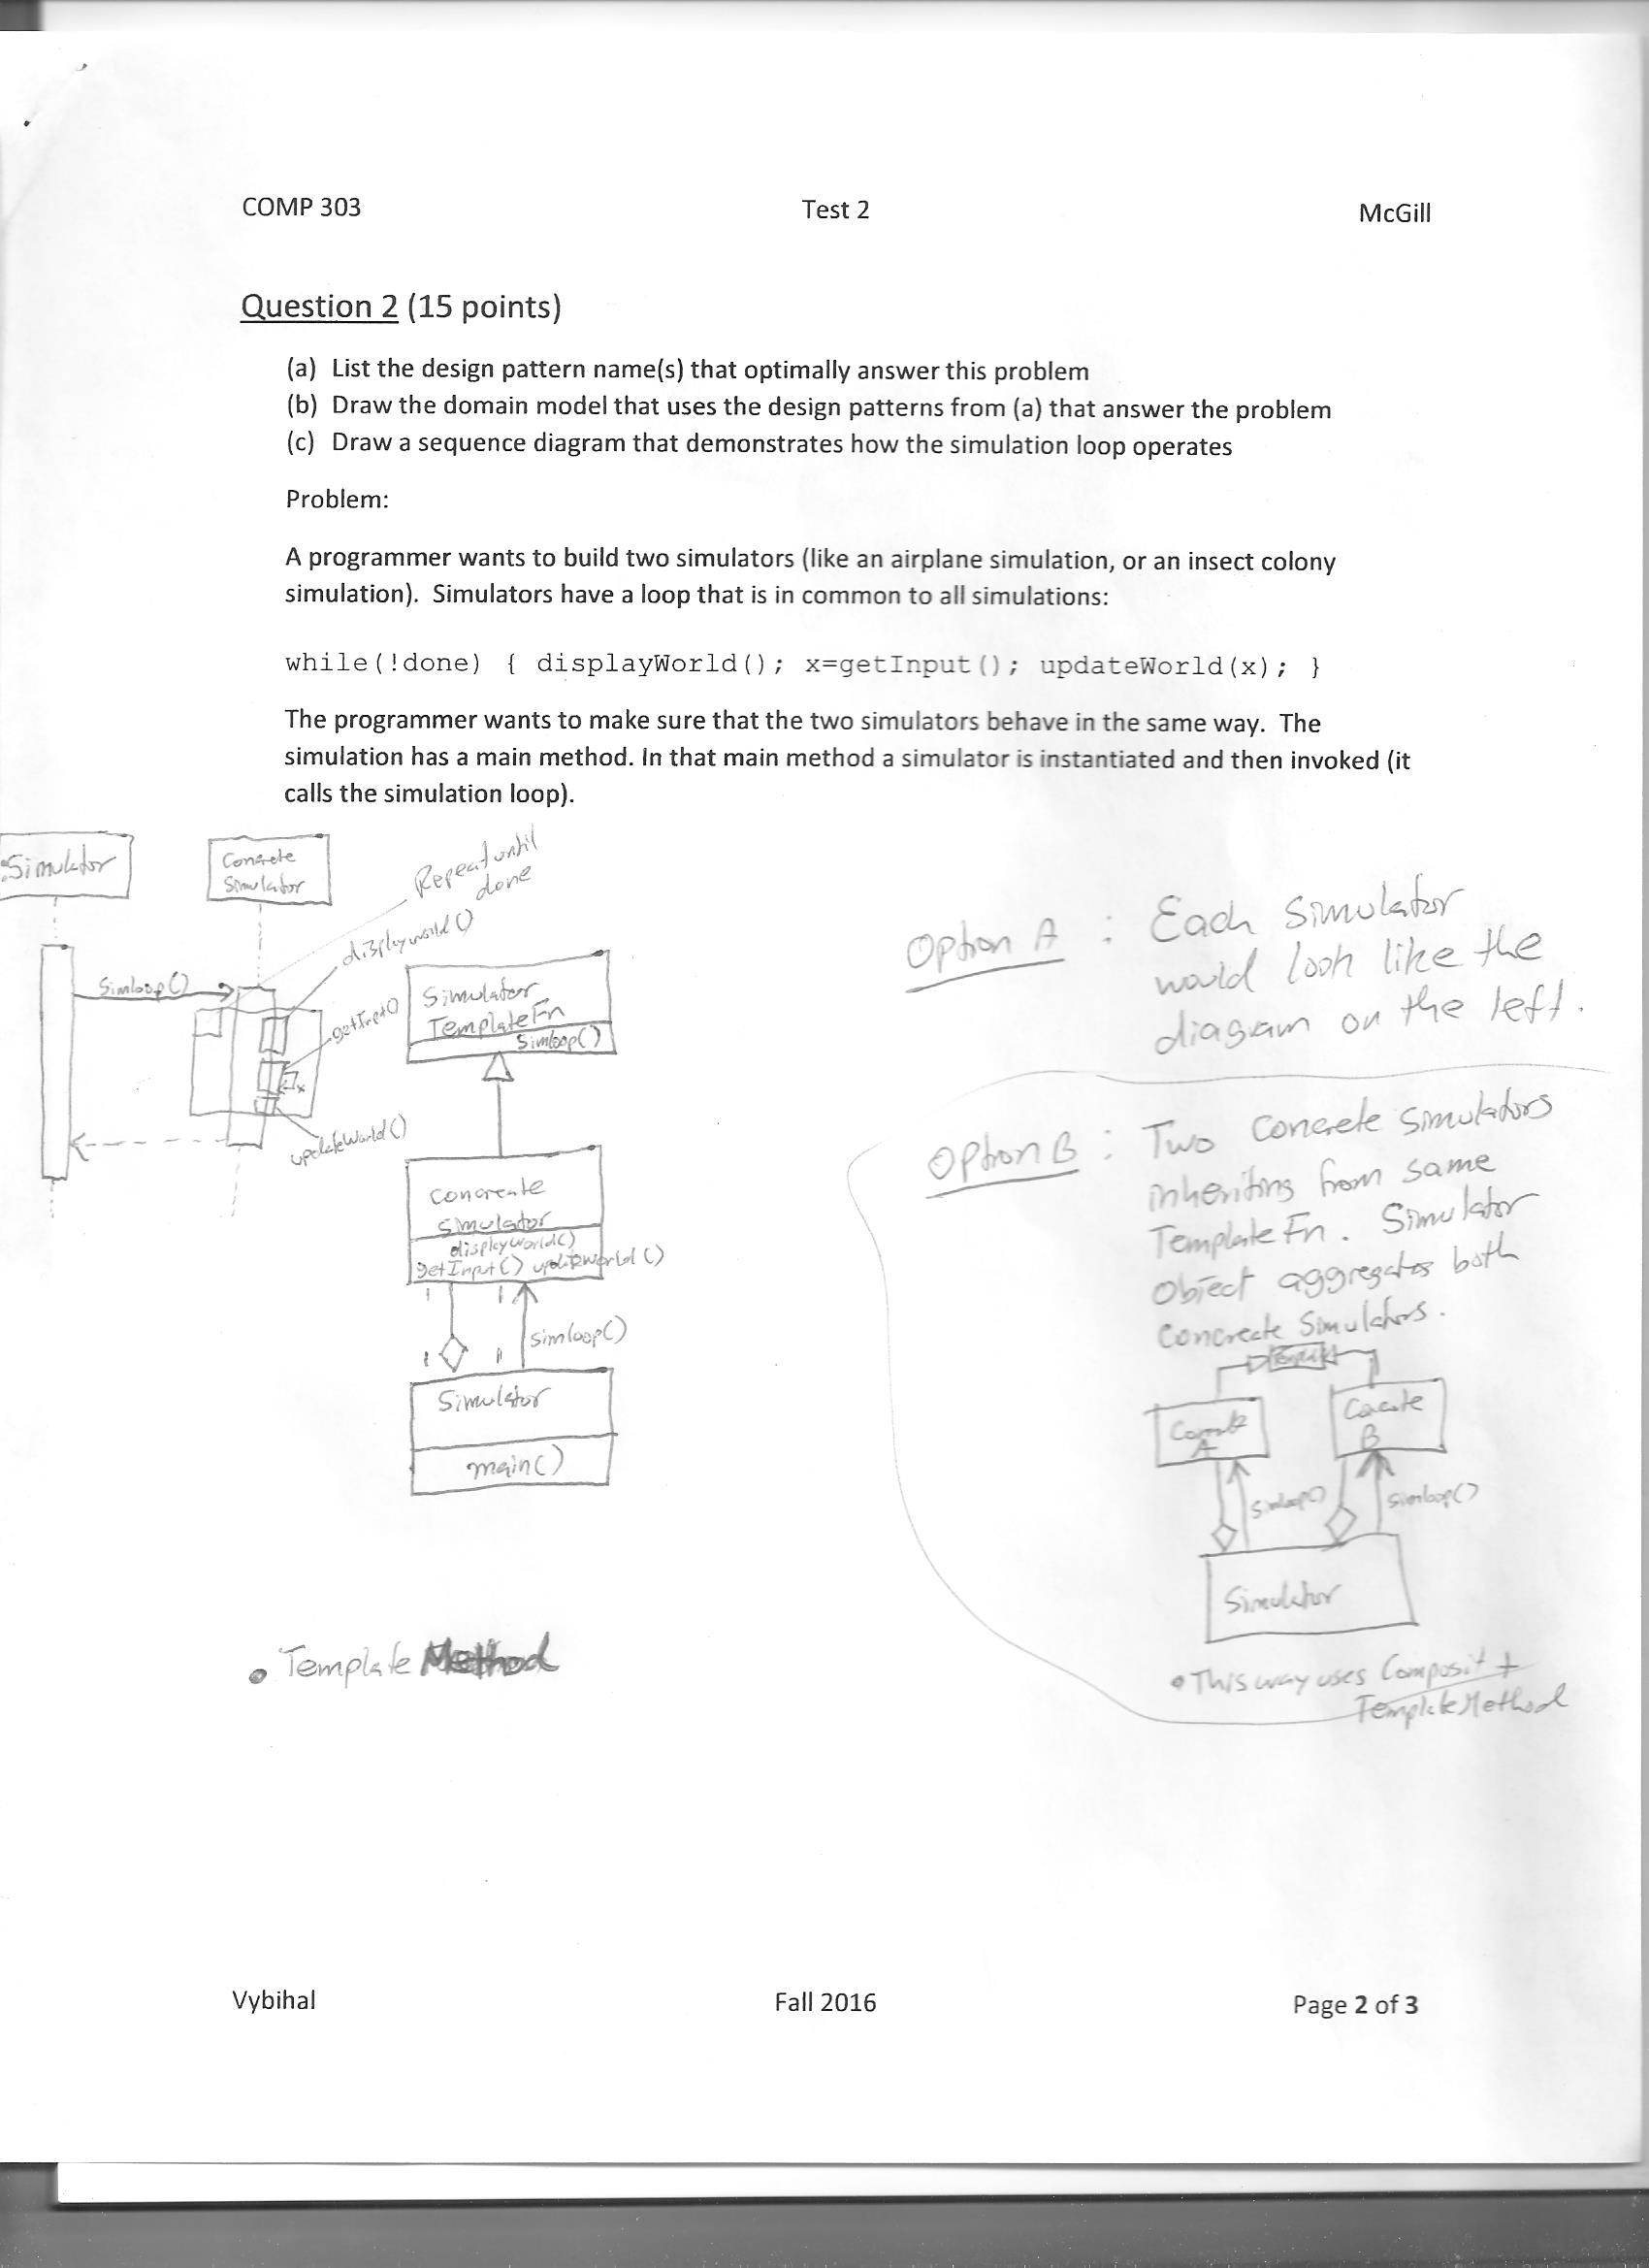 COMP 303 Test 2 McGill
Question 2 (15 points)
(a) List the design pattern name(s) that optimally answer this problem
(b) Draw the domain model that uses the design patterns from (a) that answer the problem
(c) Draw a sequence diagram that demonstrates how the simulation loop operates
Problem:
A programmer wants to build two simulators (like an airplane simulation, or an insect colony
simulation). Simulators have a loop that is in common to all simulations:
while(!done) { displayWorld(); x=getInput(); updateWorld(x); }
The programmer wants to make sure that the two simulators behave in the same way. The
simulation has a main method. In that main method a simulator is instantiated and then invoked (it
calls the simulation loop).
:Simulator
Concrete
Simulator
Repeat until
done
displayworld()
Simloop()
getInput()
x
updateWorld()
Simulator
TemplateFn
Simloop()
Concreate
simulator
displayworld()
getInput() updateworld()
1 1
simloop()
1 1
Simulator
main()
• Template Method
Option A : Each Simulator
would look like the
diagram on the left.
Option B : Two Concrete Simulators
inheriting from same
TemplateFn. Simulator
Object aggregates both
Concrete Simulators.
A
B
Simloop()
Simloop()
Simulator
• This way uses Composit +
TemplateMethod
Vybihal Fall 2016 Page 2 of 3